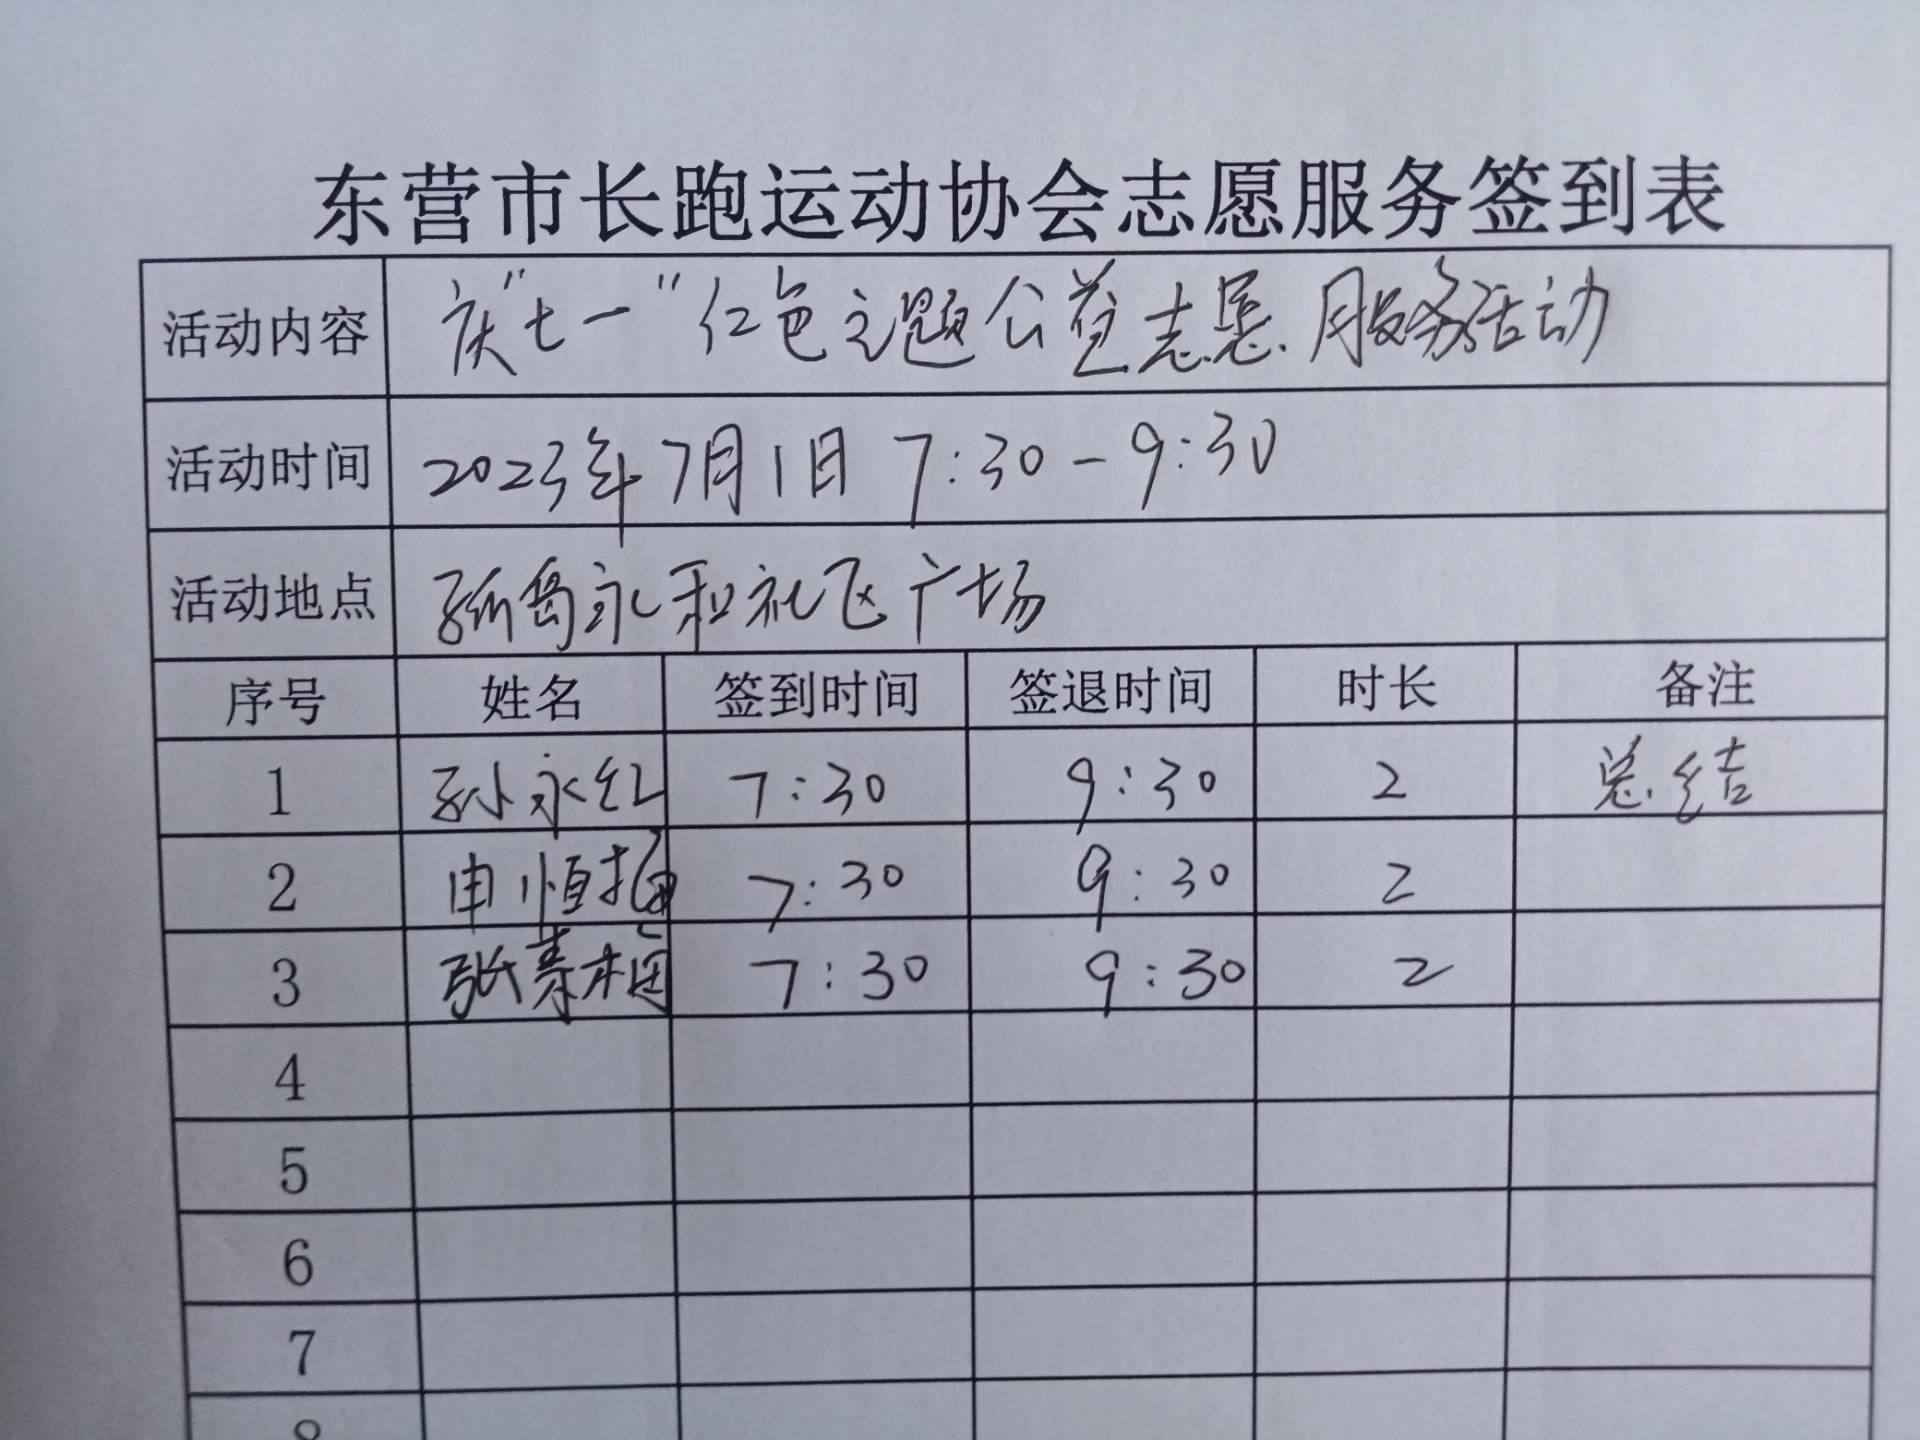 东营市长跑运动协会志愿服务签到表
活动内容 庆"七一"红色主题公益志愿服务活动
活动时间 2023年7月1日 7:30-9:30
活动地点 孤岛永和社区广场
序号 姓名 签到时间 签退时间 时长 备注
1 孙永红 7:30 9:30 2 总结
2 申恒 7:30 9:30 2
3 张素梅 7:30 9:30 2
4
5
6
7
8